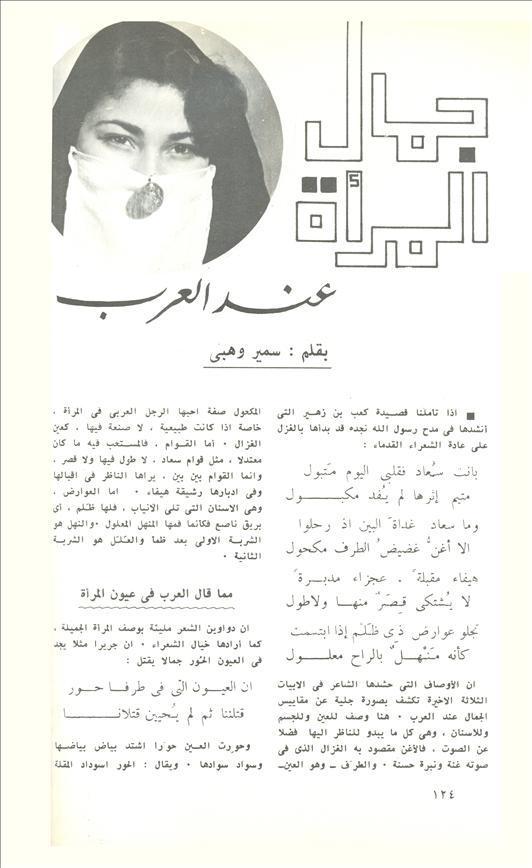 جمال
المرأة
عند العرب
بقلم : سمير وهبى
■ اذا تاملنا قصيدة كعب بن زهير التى
أنشدها فى مدح رسول الله نجده قد بدأها بالغزل
على عادة الشعراء القدماء :
بانت سُعاد فقلبي اليوم متبول
متيم إثرها لم يُفد مكبول
وما سعاد غداة البين اذ رحلوا
الا أغنُّ غضيضُ الطرف مكحول
هيفاء مقبلةً . عجزاء مدبرةً
لا يُشتكى قِصَرٌ منها ولاطول
تجلو عوارض ذى ظَلْم إذا ابتسمت
كأنه مَنْهلٌ بالراح معلول
ان الأوصاف التى حشدها الشاعر فى الابيات
الثلاثة الاخيرة تكشف بصورة جلية عن مقاييس
الجمال عند العرب . هنا وصف للعين وللجسم
وللاسنان ، وهى كل ما يبدو للناظر اليها فضلا
عن الصوت ، فالأغن مقصود به الغزال الذى فى
صوته غنة ونبرة حسنة . والطرف ـ وهو العين ـ
المكحول صفة احبها الرجل العربى فى المرأة ،
خاصة اذا كانت طبيعية ، لا صنعة فيها ، كعين
الغزال . أما القوام ، فالمستحب فيه ما كان
معتدلا ، مثل قوام سعاد ، لا طول فيها ولا قصر ،
وانما القوام بين بين ، يراها الناظر فى اقبالها
وفى ادبارها رشيقة هيفاء . اما العوارض ،
وهى الاسنان التى تلى الانياب ، فلها ظلم ، أى
بريق ناصع فكانما فمها المنهل المعلول . والنهل هو
الشربة الاولى بعد ظما والعَلَل هو الشربة
الثانية .
مما قال العرب فى عيون المرأة
ان دواوين الشعر مليئة بوصف المرأة الجميلة ،
كما أرادها خيال الشعراء . ان جريرا مثلا يجد
فى العيون الحُور جمالا يقتل :
ان العيون التي فى طرفها حور
قتلننا ثم لم يُحيين قتلانا
وحورت العين حوَرا اشتد بياض بياضها
وسواد سوادها . ويقال : الحور اسوداد المقلة
١٢٤